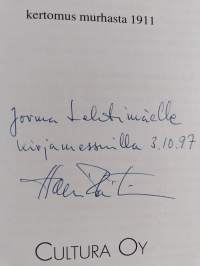 kertomus murhasta 1911
Jorma Lehtimäelle
kirjamessuilla 3.10.97
CULTURA OY